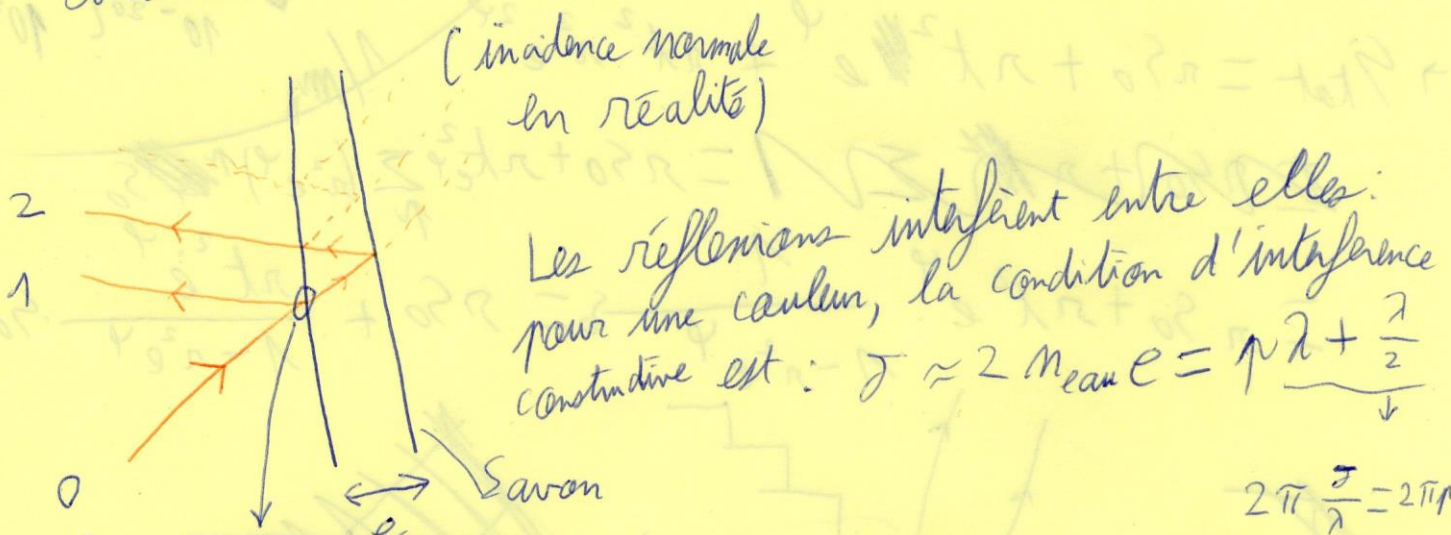 (incidence normale
en réalité)
2
1
0
Les réflexions interfèrent entre elles:
pour une couleur, la condition d'interférence
constructive est : δ ≈ 2 n_eau e = pλ + λ/2
Savon
e
2π δ/λ = 2πp